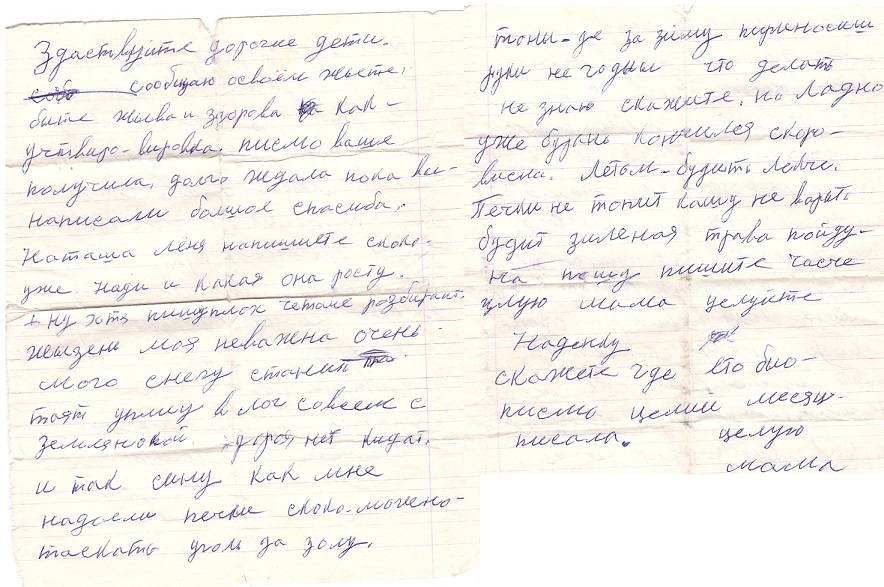 Здаствуйте дорогие дети.
сообщаю освоем жыете,
быте жыва и здорова как-
учтвиро-вировка. писмо ваше
получила, долго ждала пока вы-
написали болшое спасиба,.
Наташа Лёня напишиете скоко-
уже Нади и какая она росту.
+ ну хотя пишу плох четане розбираит.
жыздень моя неважна очень-
мого снегу станит
таят уплыву в лог совсем с
землянокой. здоровя нет кидат,
и так сижу как мне
надоели печки скоко-можено-
таскать уголь за золу,
тони-де за зиму пириносиш
руки не годныи что делать
не знаю скажите, но Ладно
уже буран кончился скоро-
висна. Летом-будить Легче.
Печки не топит кашу не варить
будит зиленая трава пойду-
на пошу пишите часче
цулую мама целуйте
Наденку
скажете где ето био-
писмо целии месяц-
писала.
целую
мама